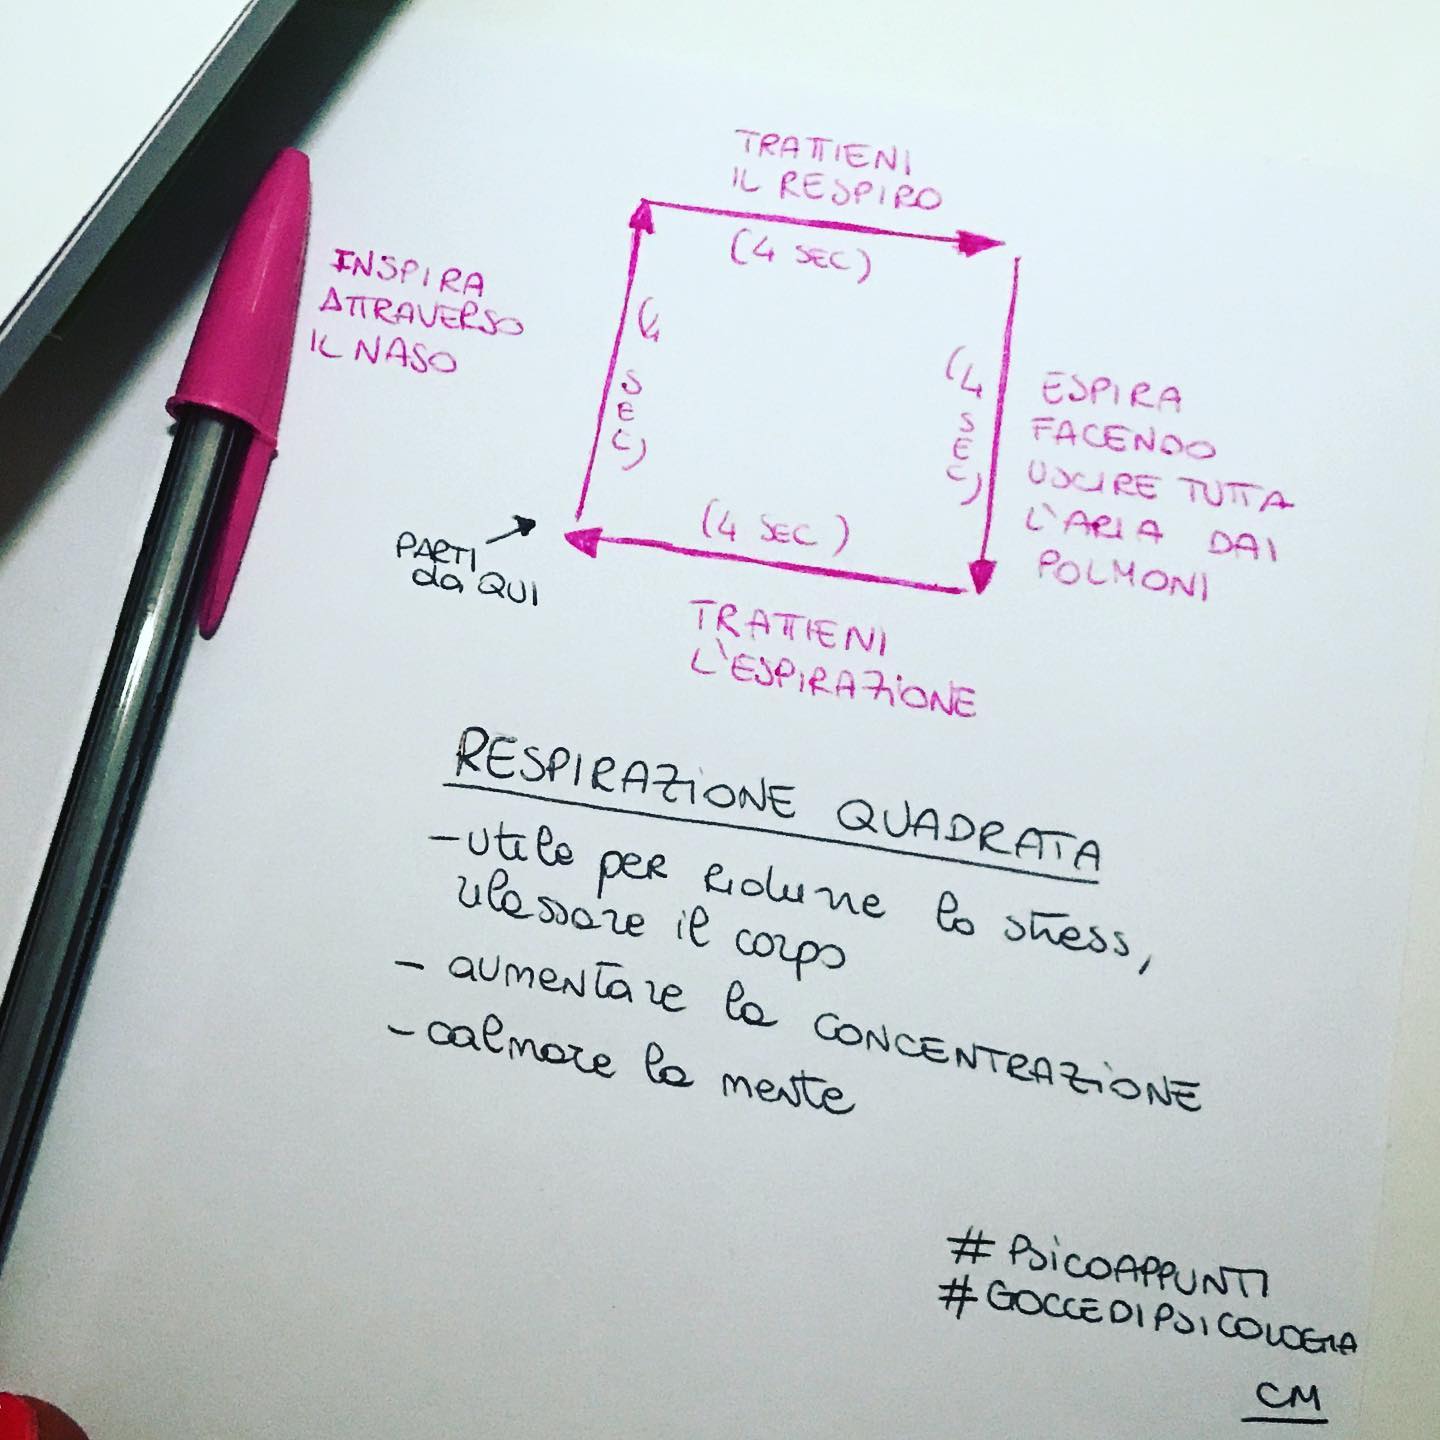 TRATTIENI
IL RESPIRO
(4 SEC)
INSPIRA
ATTRAVERSO
IL NASO
(4
SEC)
(4
SEC)
ESPIRA
FACENDO
USCIRE TUTTA
L'ARIA DAI
POLMONI
(4 SEC)
PARTI
da QUI
TRATTIENI
L'ESPIRAZIONE
RESPIRAZIONE QUADRATA
- utile per ridurre lo stress,
rilassare il corpo
- aumentare la CONCENTRAZIONE
- calmare la mente
#PSICOAPPUNTI
#GOCCEDIPSICOLOGIA
CM